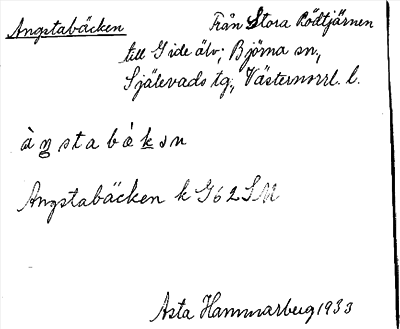 Angstabäcken Från Stora Rödtjärnen
till Gide älv; Björna sn,
Själevads tg., Västernorrl. l.
àŋstabàkən
Angstabäcken k G62SM
Asta Hammarberg 1933